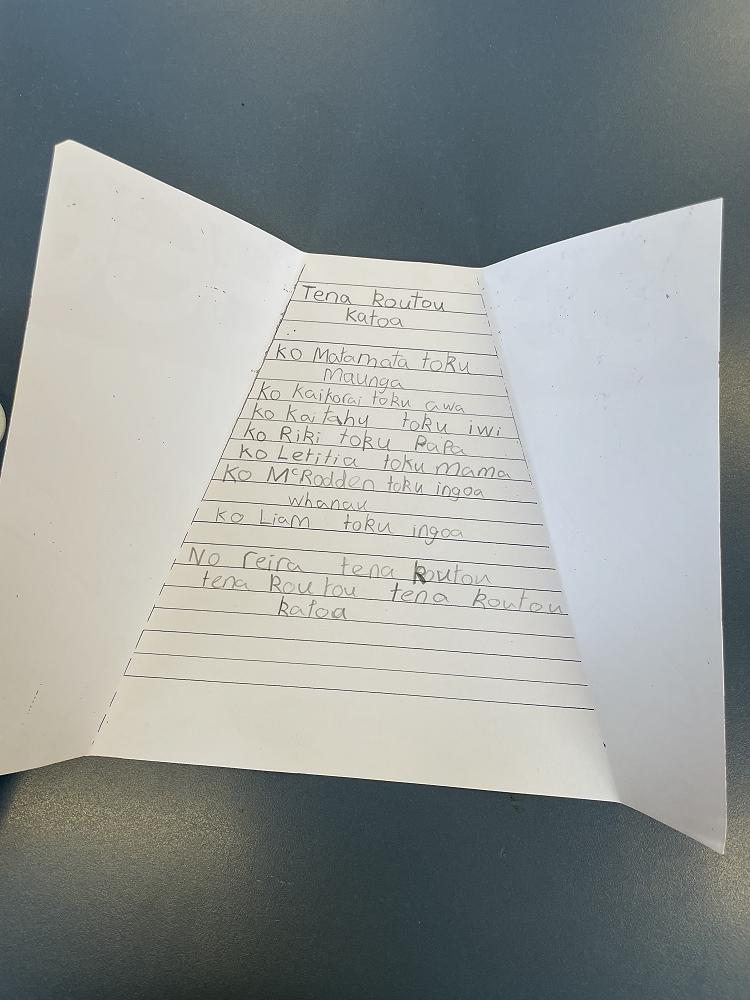 Tena koutou
katoa
ko Matamata toku
Maunga
ko Kaikorai toku awa
ko Kaitahy toku iwi
ko Riki toku Papa
ko Letitia toku mama
Ko McRodden toku ingoa
whanau
ko Liam toku ingoa
No reira tena koutou
tena koutou tena koutou
katoa